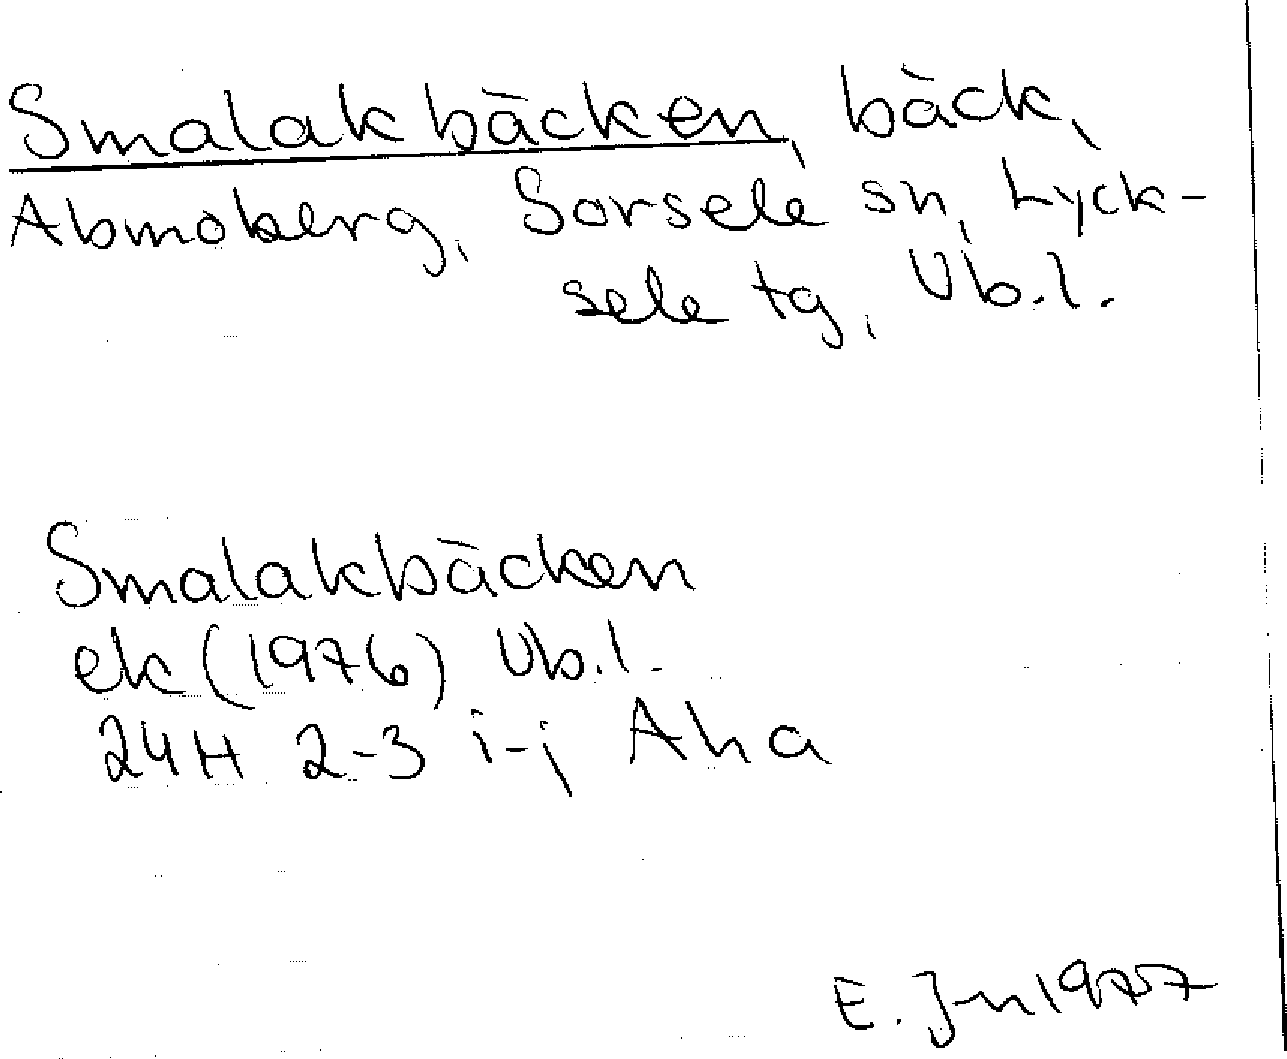 Smalakbäcken, bäck,
Abmoberg, Sorsele sn, Lyck-
sele tg, Vb.l.
Smalakbäcken
ek (1976) Vb.l.
24H 2-3 i-j Aha
E. J-n 1977